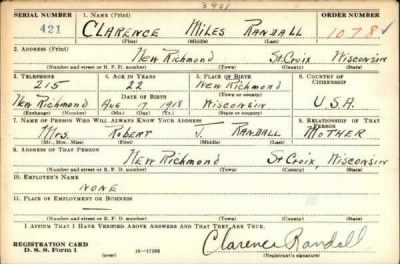 3401
SERIAL NUMBER 1. NAME (Print) ORDER NUMBER
421 CLARENCE MILES RANDALL 1078
(First) (Middle) (Last)
2. ADDRESS (Print)
NEW RICHMOND ST CROIX WISCONSIN
(Number and street or R. F. D. number) (Town) (County) (State)
3. TELEPHONE 4. AGE IN YEARS 5. PLACE OF BIRTH 6. COUNTRY OF CITIZENSHIP
215 22 NEW RICHMOND
DATE OF BIRTH (Town or county)
NEW RICHMOND AUG 17 1918 WISCONSIN U.S.A.
(Exchange) (Number) (Mo.) (Day) (Yr.) (State or country)
7. NAME OF PERSON WHO WILL ALWAYS KNOW YOUR ADDRESS 8. RELATIONSHIP OF THAT PERSON
MRS. ROBERT J. RANDALL MOTHER
(Mr., Mrs., Miss) (First) (Middle) (Last)
9. ADDRESS OF THAT PERSON
NEW RICHMOND ST CROIX, WISCONSIN
(Number and street or R. F. D. number) (Town) (County) (State)
10. EMPLOYER'S NAME
NONE
11. PLACE OF EMPLOYMENT OR BUSINESS
(Number and street or R. F. D. number) (Town) (County) (State)
I AFFIRM THAT I HAVE VERIFIED ABOVE ANSWERS AND THAT THEY ARE TRUE.
REGISTRATION CARD
D. S. S. Form 1 (over) Clarence Randall
(Registrant's signature)